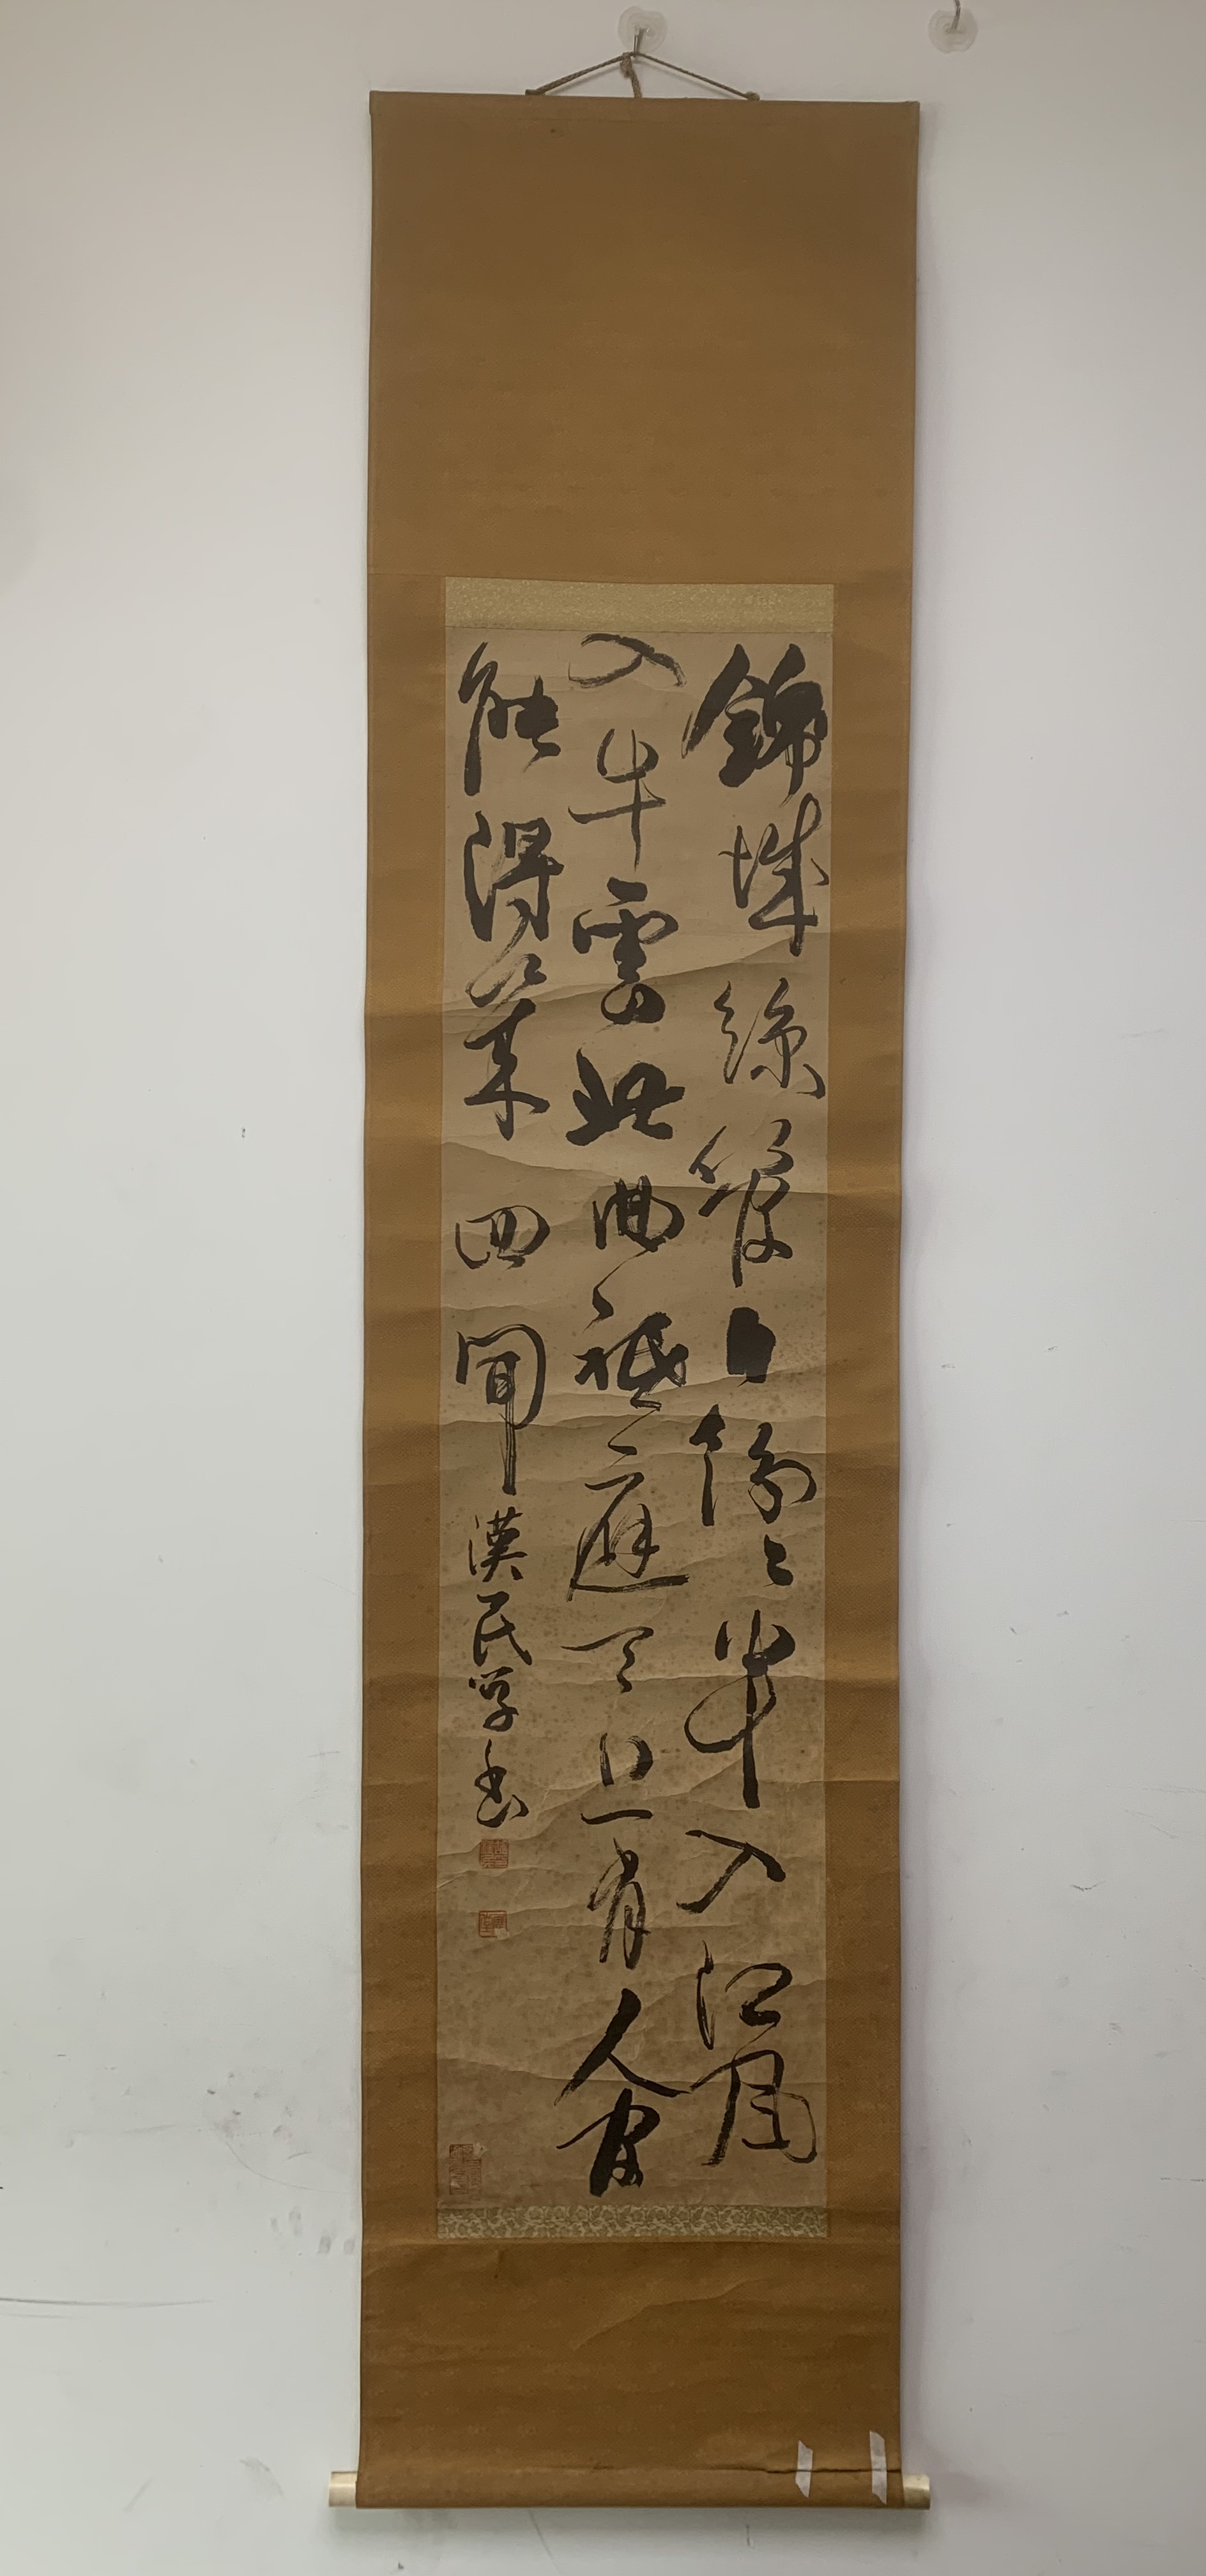 錦城絲管日紛々半入江風
入半雲此曲祇應天上有人間
能得幾回聞 漢民学書